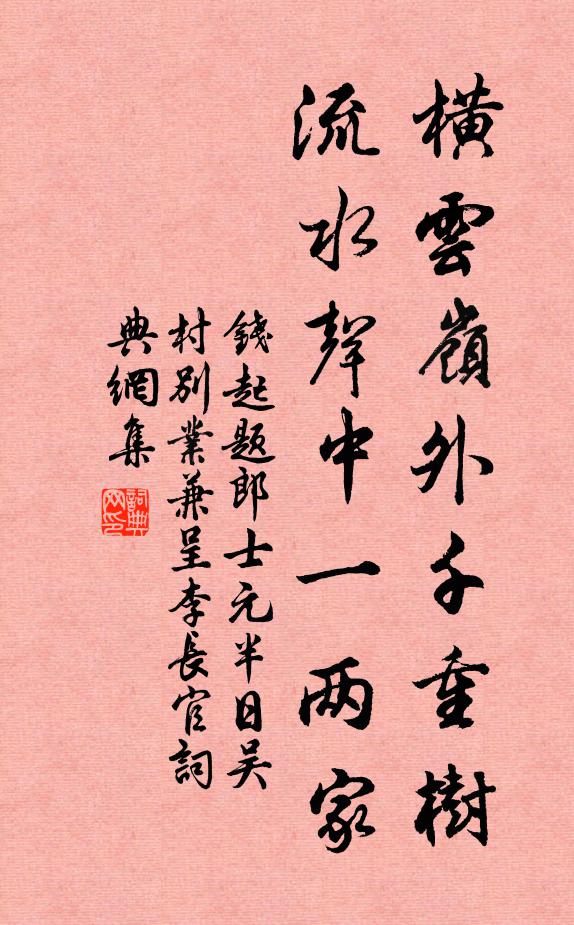 橫雲嶺外千重樹
流水聲中一兩家
錢起題郎士元半日吴
村別業兼呈李長官詞
典網集
詞典
网印